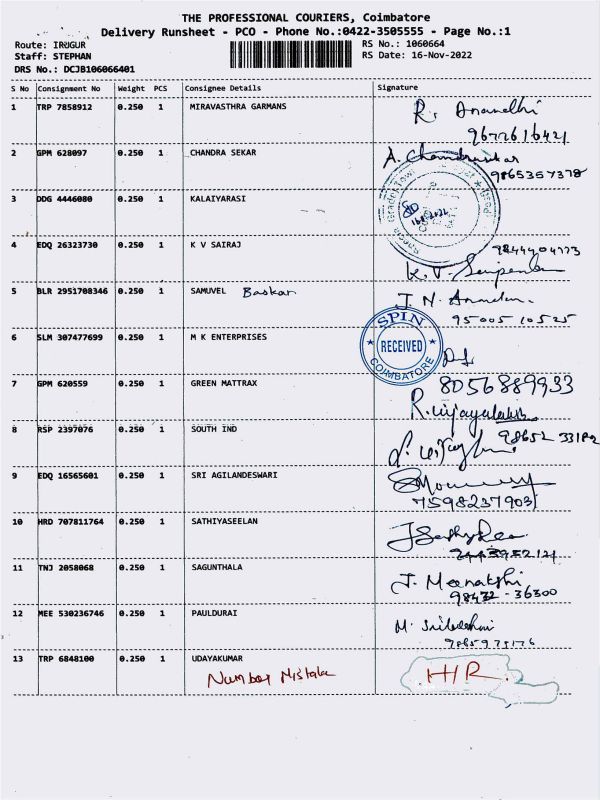 THE PROFESSIONAL COURIERS, Coimbatore
Delivery Runsheet - PCO - Phone No.:0422-3505555 - Page No.:1
Route: IRUGUR RS No.: 1060664
Staff: STEPHAN RS Date: 16-Nov-2022
DRS No.: DCJB106066401
S No Consignment No Weight PCS Consignee Details Signature
1 TRP 7858912 0.250 1 MIRAVASTHRA GARMANS R. Anandhi
9677616421
2 GPM 628097 0.250 1 CHANDRA SEKAR A. Chandrasekar
9865357378
3 DDG 4446080 0.250 1 KALAIYARASI
4 EDQ 26323730 0.250 1 K V SAIRAJ 9244404773
K.V.
5 BLR 2951708346 0.250 1 SAMUVEL Baskar J. N.
95005 10525
SPIN
6 SLM 307477699 0.250 1 M K ENTERPRISES RECEIVED
COIMBATORE
7 GPM 620559 0.250 1 GREEN MATTRAX 8056889933
R. Vijayalakshmi
8 RSP 2397076 0.250 1 SOUTH IND
9 EDQ 16565601 0.250 1 SRI AGILANDESWARI
7598237903
10 HRD 707811764 0.250 1 SATHIYASEELAN
11 TNJ 2058068 0.250 1 SAGUNTHALA J. Meenakshi
98432-36300
12 MEE 530236746 0.250 1 PAULDURAI M.
13 TRP 6848100 0.250 1 UDAYAKUMAR HR.
Number Mistake